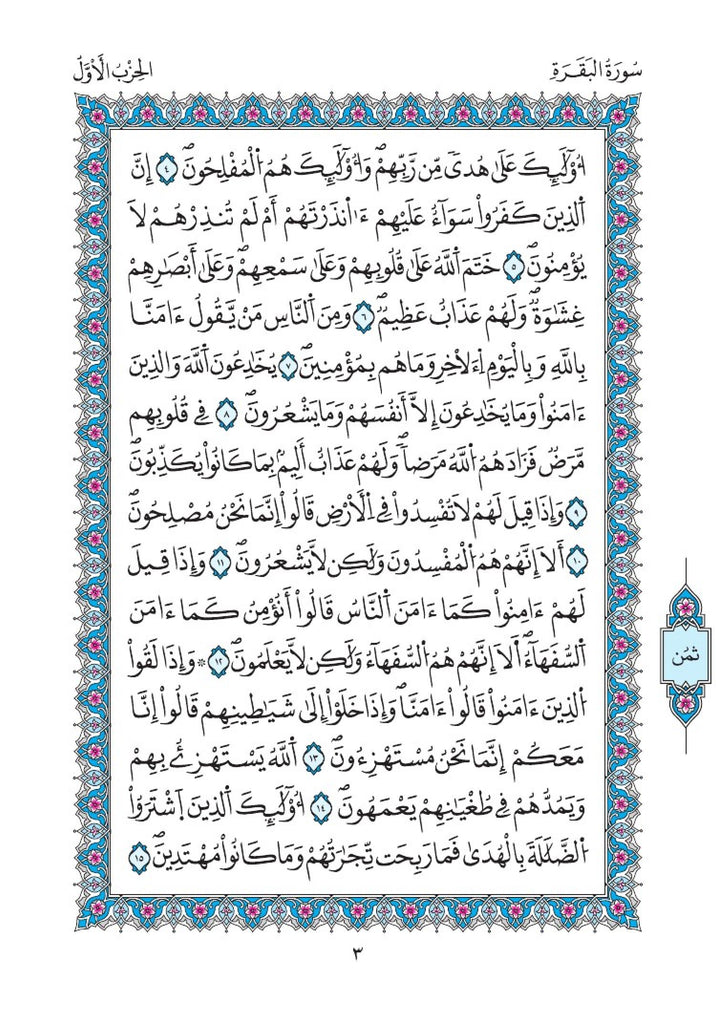 سُورَةُ البَقَرَةِ
الحِزْبُ الَاوَّلُ
أُوْلَٰٓئِكَ عَلَىٰ هُدىٗ مِّن رَّبِّهِمْۖ وَأُوْلَٰٓئِكَ هُمُ اُ۬لْمُفْلِحُونَۖ ٤ إِنَّ
اَ۬لذِينَ كَفَرُواْ سَوَآءٌ عَلَيْهِمْ ءَآنذَرْتَهُمْ أَمْ لَمْ تُنذِرْهُمْ لَا
يُؤْمِنُونَۖ ٥ خَتَمَ اَ۬للَّهُ عَلَىٰ قُلُوبِهِمْ وَعَلَىٰ سَمْعِهِمْۖ وَعَلَىٰٓ أَبْصَٰرِهِمْ
غِشَٰوَةٞۖ وَلَهُمْ عَذَابٌ عَظِيمٞۖ ٦ وَمِنَ اَ۬لنَّاسِ مَنْ يَّقُولُ ءَامَنَّا
بِاللَّهِ وَبِالْيَوْمِ اِ۬لَاخِرِ وَمَا هُم بِمُؤْمِنِينَۖ ٧ يُخَٰدِعُونَ اَ۬للَّهَ وَالذِينَ
ءَامَنُواْ وَمَا يُخَٰدِعُونَ إِلَّآ أَنفُسَهُمْ وَمَا يَشْعُرُونَۖ ٨ فِي قُلُوبِهِم
مَّرَضٞ فَزَادَهُمُ اُ۬للَّهُ مَرَضاٗۖ وَلَهُمْ عَذَابٌ أَلِيمُۢ بِمَا كَانُواْ يُكَذِّبُونَۖ
٩ وَإِذَا قِيلَ لَهُمْ لَا تُفْسِدُواْ فِي اِ۬لَارْضِ قَالُوٓاْ إِنَّمَا نَحْنُ مُصْلِحُونَۖ
١٠ أَلَآ إِنَّهُمْ هُمُ اُ۬لْمُفْسِدُونَ وَلَٰكِن لَّا يَشْعُرُونَۖ ١١ وَإِذَا قِيلَ
لَهُمْ ءَامِنُواْ كَمَآ ءَامَنَ اَ۬لنَّاسُ قَالُوٓاْ أَنُؤْمِنُ كَمَآ ءَامَنَ
اَ۬لسُّفَهَآءُۖ أَلَآ إِنَّهُمْ هُمُ اُ۬لسُّفَهَآءُ وَلَٰكِن لَّا يَعْلَمُونَۖ ١٢ * وَإِذَا لَقُواْ
اُ۬لذِينَ ءَامَنُواْ قَالُوٓاْ ءَامَنَّاۖ وَإِذَا خَلَوِاْ اِلَىٰ شَيَٰطِينِهِمْ قَالُوٓاْ إِنَّا
مَعَكُمْ إِنَّمَا نَحْنُ مُسْتَهْزِءُونَۖ ١٣ اَ۬للَّهُ يَسْتَهْزِئُ بِهِمْ
وَيَمُدُّهُمْ فِي طُغْيَٰنِهِمْ يَعْمَهُونَۖ ١٤ أُوْلَٰٓئِكَ اَ۬لذِينَ اَ۪شْتَرَوُاْ
اُ۬لضَّلَٰلَةَ بِالْهُدَىٰ فَمَا رَبِحَت تِّجَٰرَتُهُمْ وَمَا كَانُواْ مُهْتَدِينَۖ ١٥
ثُمُن
٣